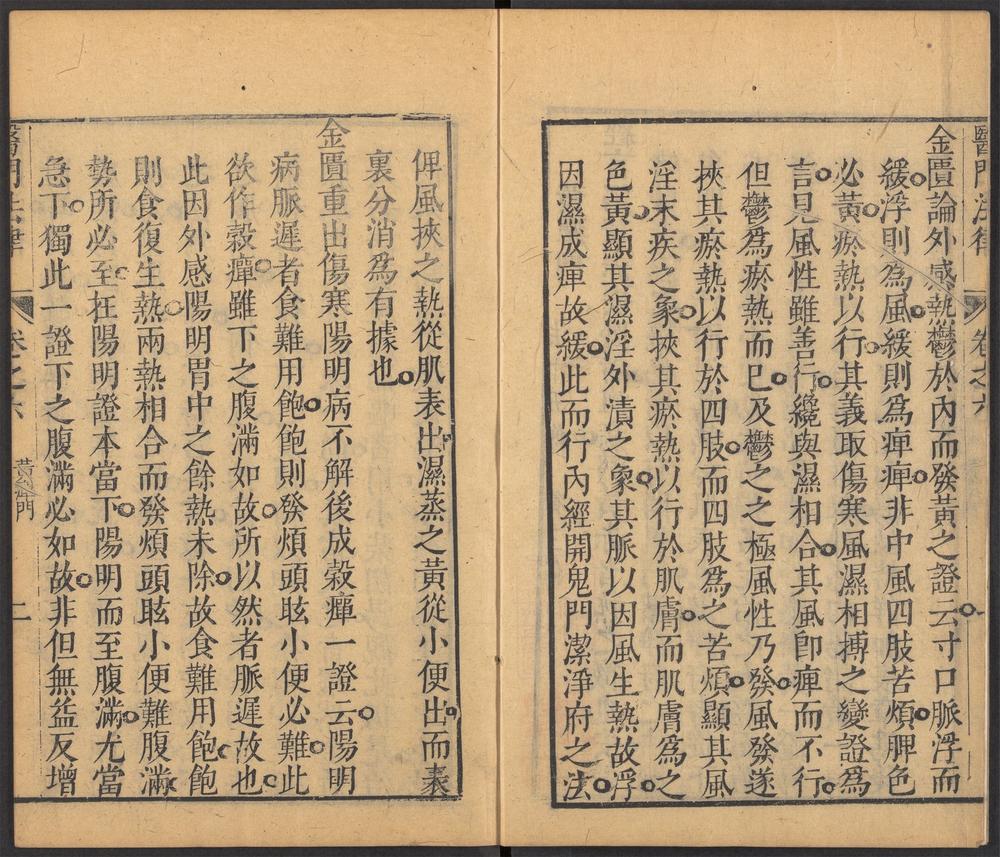 醫門法律 卷之六
金匱論外感熱鬱於內而發黃之證云寸口脈浮而
緩浮則為風緩則為痺痺非中風四肢苦煩脾色
必黃瘀熱以行其義取傷寒風濕相搏之變證為
言見風性雖善行纔與濕相合其風卽痺而不行
但鬱為瘀熱而已及鬱之之極風性乃發風發遂
挾其瘀熱以行於四肢而四肢為之苦煩顯其風
淫末疾之象挾其瘀熱以行於肌膚而肌膚為之
色黃顯其濕淫外漬之象其脈以因風生熱故浮
因濕成痺故緩此而行內經開鬼門潔淨府之法
俾風挾之熱從肌表出濕蒸之黃從小便出而表
裏分消為有據也
金匱重出傷寒陽明病不解後成穀癉一證云陽明
病脈遲者食難用飽飽則發煩頭眩小便必難此
欲作穀癉雖下之腹滿如故所以然者脈遲故也
此因外感陽明胃中之餘熱未除故食難用飽飽
則食復生熱兩熱相合而發煩頭眩小便難腹滿
勢所必至在陽明證本當下陽明而至腹滿尤當
急下獨此一證下之腹滿必如故非但無益反增
醫門法律 卷之六 黃癉門 二